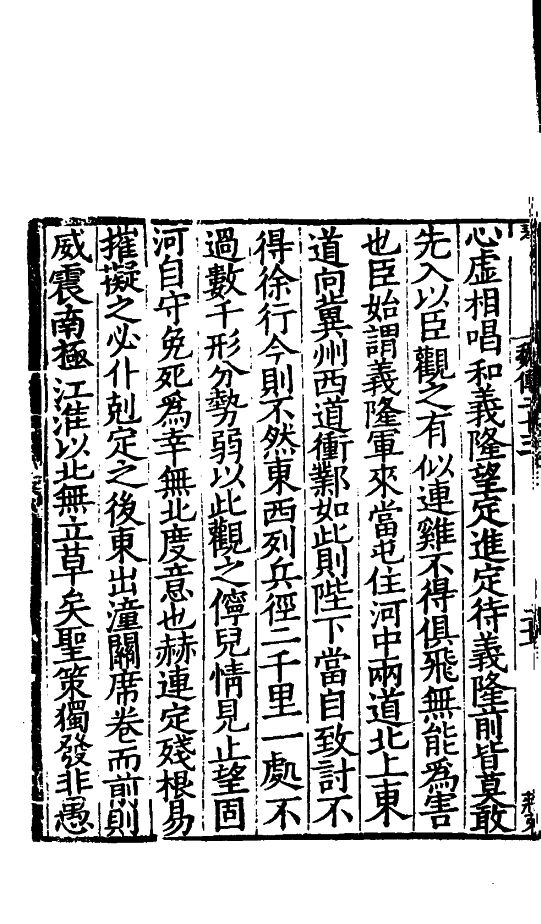 魏傳二十三
心虛相唱和義隆望定進定待義隆前皆莫敢
先入以臣觀之有似連雞不得俱飛無能爲害
也臣始謂義隆軍來當屯住河中兩道北上東
道向冀州西道衝鄴如此則陛下當自致討不
得徐行今則不然東西列兵徑二千里一處不
過數千形分勢弱以此觀之儜兒情見止望固
河自守免死爲幸無北度意也赫連定殘根易
摧擬之必仆剋定之後東出潼關席卷而前則
威震南極江淮以北無立草矣聖策獨發非愚